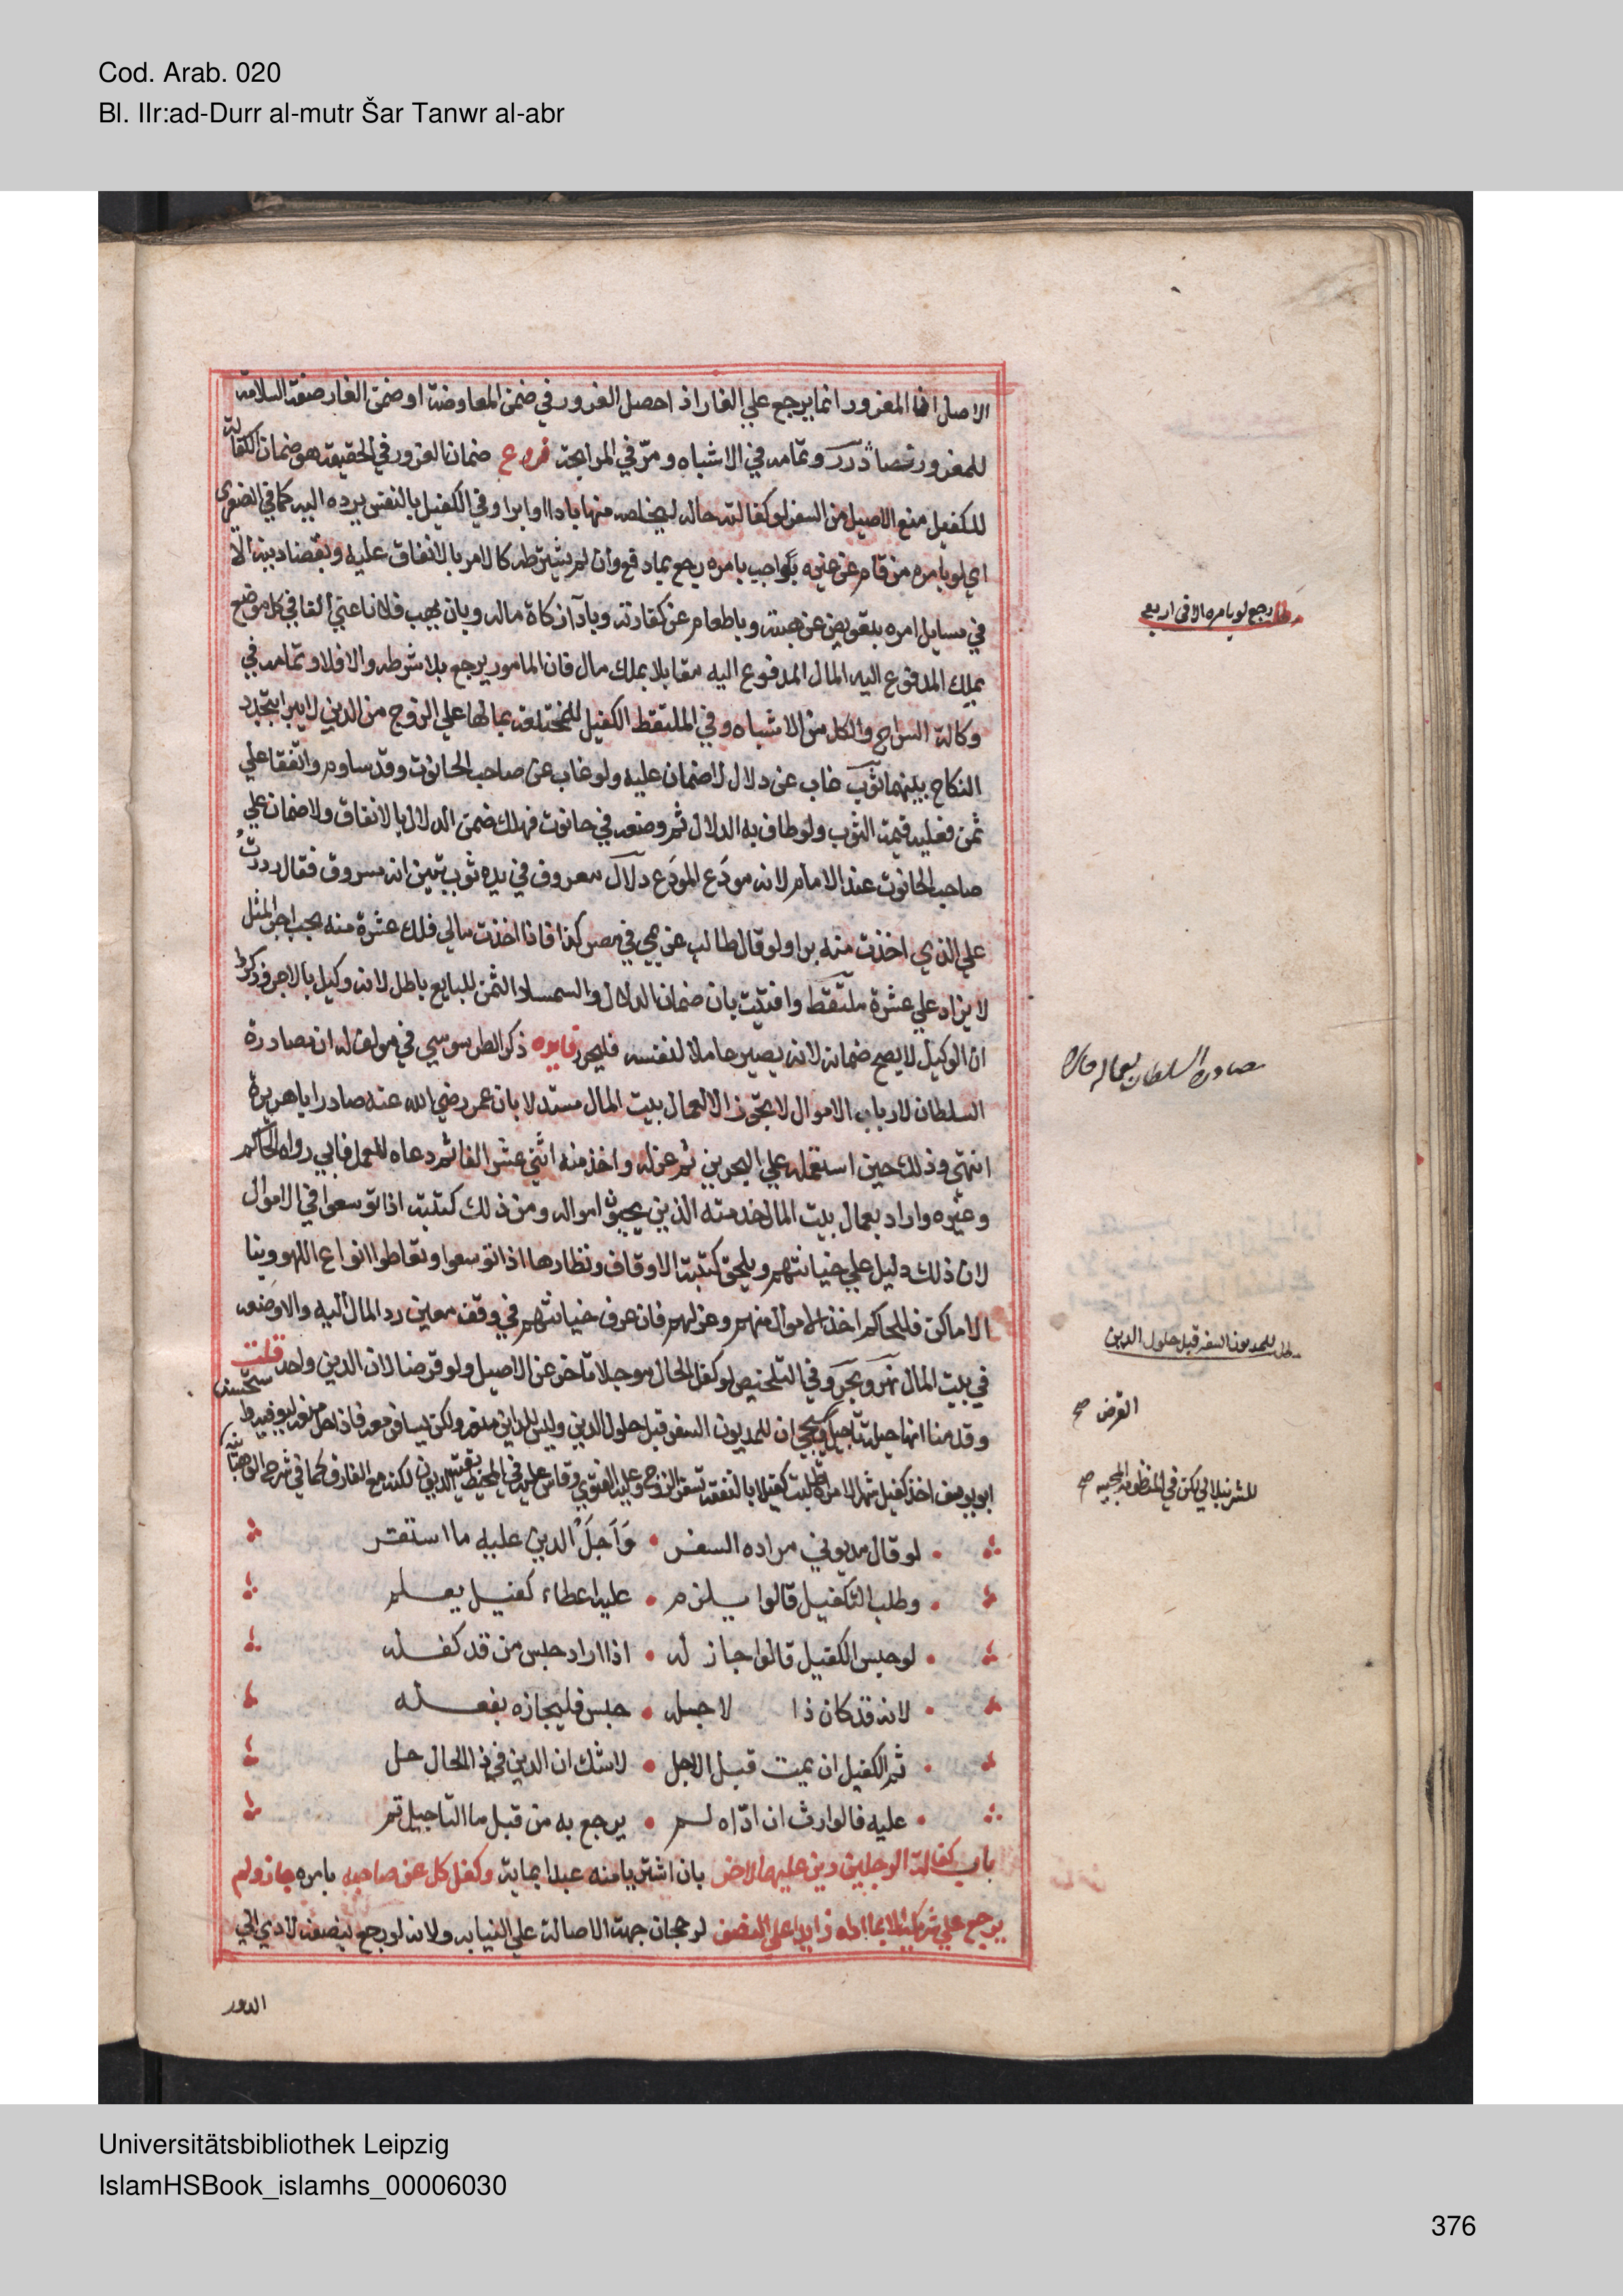 Cod. Arab. 020
Bl. IIr:ad-Durr al-mutr Šar Tanwr al-abr
الاصل ان المغرور انما يرجع علي الغار اذا حصل الغرور في ضمن المعاوضة او ضمن الغار صفة السلامة
للمغرور نصا درر وتمامه في الاشباه ومرّ في المرابحة فروع ضمان الغرور في الحقيقة هو ضمان الكفالة
للكفيل منع الاصيل من السفر لو كفالته حالة ليخلصه منها باداء او ابرا وفي الكفيل بالنفس يرده اليه كما في الصغرى
اي لو بامره من قام عن غيره بواجب بامره رجع بما دفع وان لم يشترطه كالامر بالانفاق عليه وبقضاء دينه الا
في مسايل امره بتعويض عن هبته وباطعام عن كفارته وبادآ زكاة ماله وبان يهب فلانا عني الفا في كل موضع
يملك المدفوع اليه المال المدفوع اليه مقابلا بملك مال فان المامور يرجع بلا شرط والا فلا وتمامه في
وكالة السراج والكل من الاشباه وفي الملتقط الكفيل للمختلعة بمالها علي الزوج من الدين لا يبرا بتجدد
النكاح بينهما ثوب غاب عن دلال لا ضمان عليه ولو غاب عن صاحب الحانوت وقد ساوم واتفقا علي
ثمن فعليه قيمة الثوب ولو طاف به الدلال ثم وضعه في حانوت فهلك ضمن الدلال بالاتفاق ولا ضمان علي
صاحب الحانوت عند الامام لانه مودَع المودَع دلال معروف في يده ثوب تبين انه مسروق فقال رددتُ
علي الذي اخذت منه برا ولو قال طالب غريمي في مصر كذا فاذا اخذت مالي فلك عشرة منه يجب اجر المثل
لا يزاد علي عشرة ملتقط وافتيت بان ضمان الدلال والسمسار الثمن للبايع باطل لانه وكيل بالاجر وذكروا
ان الوكيل لا يصح ضمانه لانه يصير عاملا لنفسه فليحرر فايده ذكر الطرسوسي في مولف له ان مصادرة
السلطان لارباب الاموال لا تجوز الا لعمال بيت المال مستدلا بان عمر رضي الله عنه صادر اباهريرة
انتهى وذلك حين استعمله علي البحرين ثم عزله واخذ منه اثني عشر الفا ثم دعاه للعمل فابي رواه الحاكم
وغيره واراد بعمال بيت المال خدمته الذين يجبون امواله ومن ذلك كتبته اذا توسعوا في الاموال
لان ذلك دليل علي خيانتهم ويلحق كتبة الاوقاف ونظارها اذا توسعوا وتعاطوا انواع اللهو وبنا
الاماكن فللحاكم اخذ الاموال منهم وعزلهم فان عرف خيانتهم في وقف معين رد المال اليه والا وضعه
في بيت المال نهر وبحر وفي التلخيص لو كفل الحال موجلا تاخر عن الاصيل ولو قرضا لان الدين واحد قلت
وقدمنا انها حيلة تاجيل وسيجي ان للمديون السفر قبل حلول الدين وليس للداين منعه ولكن يسافر معه فاذا حل منعه ليوفيه واستحسن
ابويوسف اخذ كفيل شهرا لامراة طلبت كفيلا بالنفقة لسفر الزوج وعليه الفتوي وقاس عليه في المحيط بقية الديون لكنه مع الفارق كما في شرح الوهبانية
لو قال مديوني مراده السفر وَاَجَلَ الدين عليه ما استقر
وطلب التكفيل قالوا يلزم عليه اعطاء كفيل يعلم
لو حبس الكفيل قالوا جاز له اذا اراد حبس من قد كفله
لانه قد كان ذا لاجله حبس فليجازه بفعله
ثم الكفيل ان يمت قبل الاجل لا شك ان الدين في ذا الحال حل
عليه فالوارث ان ادّاه لم يرجع به من قبل ما التاجيل تم
باب كفالة الرجلين دين عليهما لاخر بان اشتريا منه عبدا بماية وكفل كل عن صاحبه بامره جاز ولم
يرجع علي شريكه الا بما اداه زايدا علي النصف لرجحان جهة الاصالة علي النيابه ولانه لو رجع بنصفه لادي الي
الدور
مطلب رجع لو بامره الا في اربع
مصادرة السلطان لعماله جائزة
مطلب للمديون السفر قبل حلول الدين
القرض صح
للشرنبلالي لكن في المنظومة المحبيه صح
Universitätsbibliothek Leipzig
IslamHSBook_islamhs_00006030
376